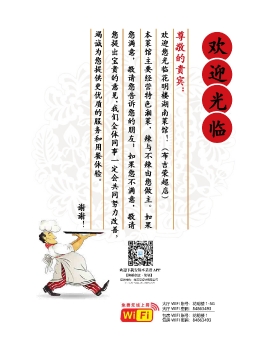 欢迎光临
尊敬的贵宾：
欢迎您光临花明楼湖南菜馆！（布吉荣超店）
本菜馆主要经营特色湘菜，辣与不辣由您做主。如果
您满意，敬请您告诉您的朋友；如果您不满意，敬请
您提出宝贵的意见，我们全体同事一定会共同努力改善，
竭诚为您提供更优质的服务和用餐体验。
谢谢！
免费无线上网
WiFi